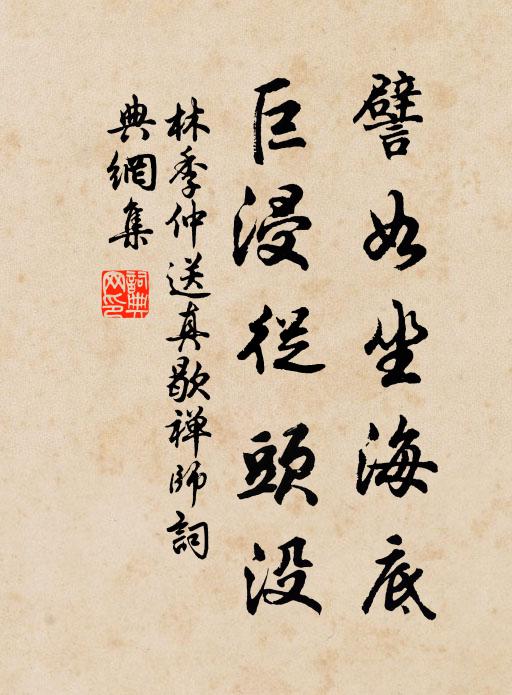 譬如坐海底
巨浸從頭没
林季仲送真歇禅師詞
典網集
詞典网印